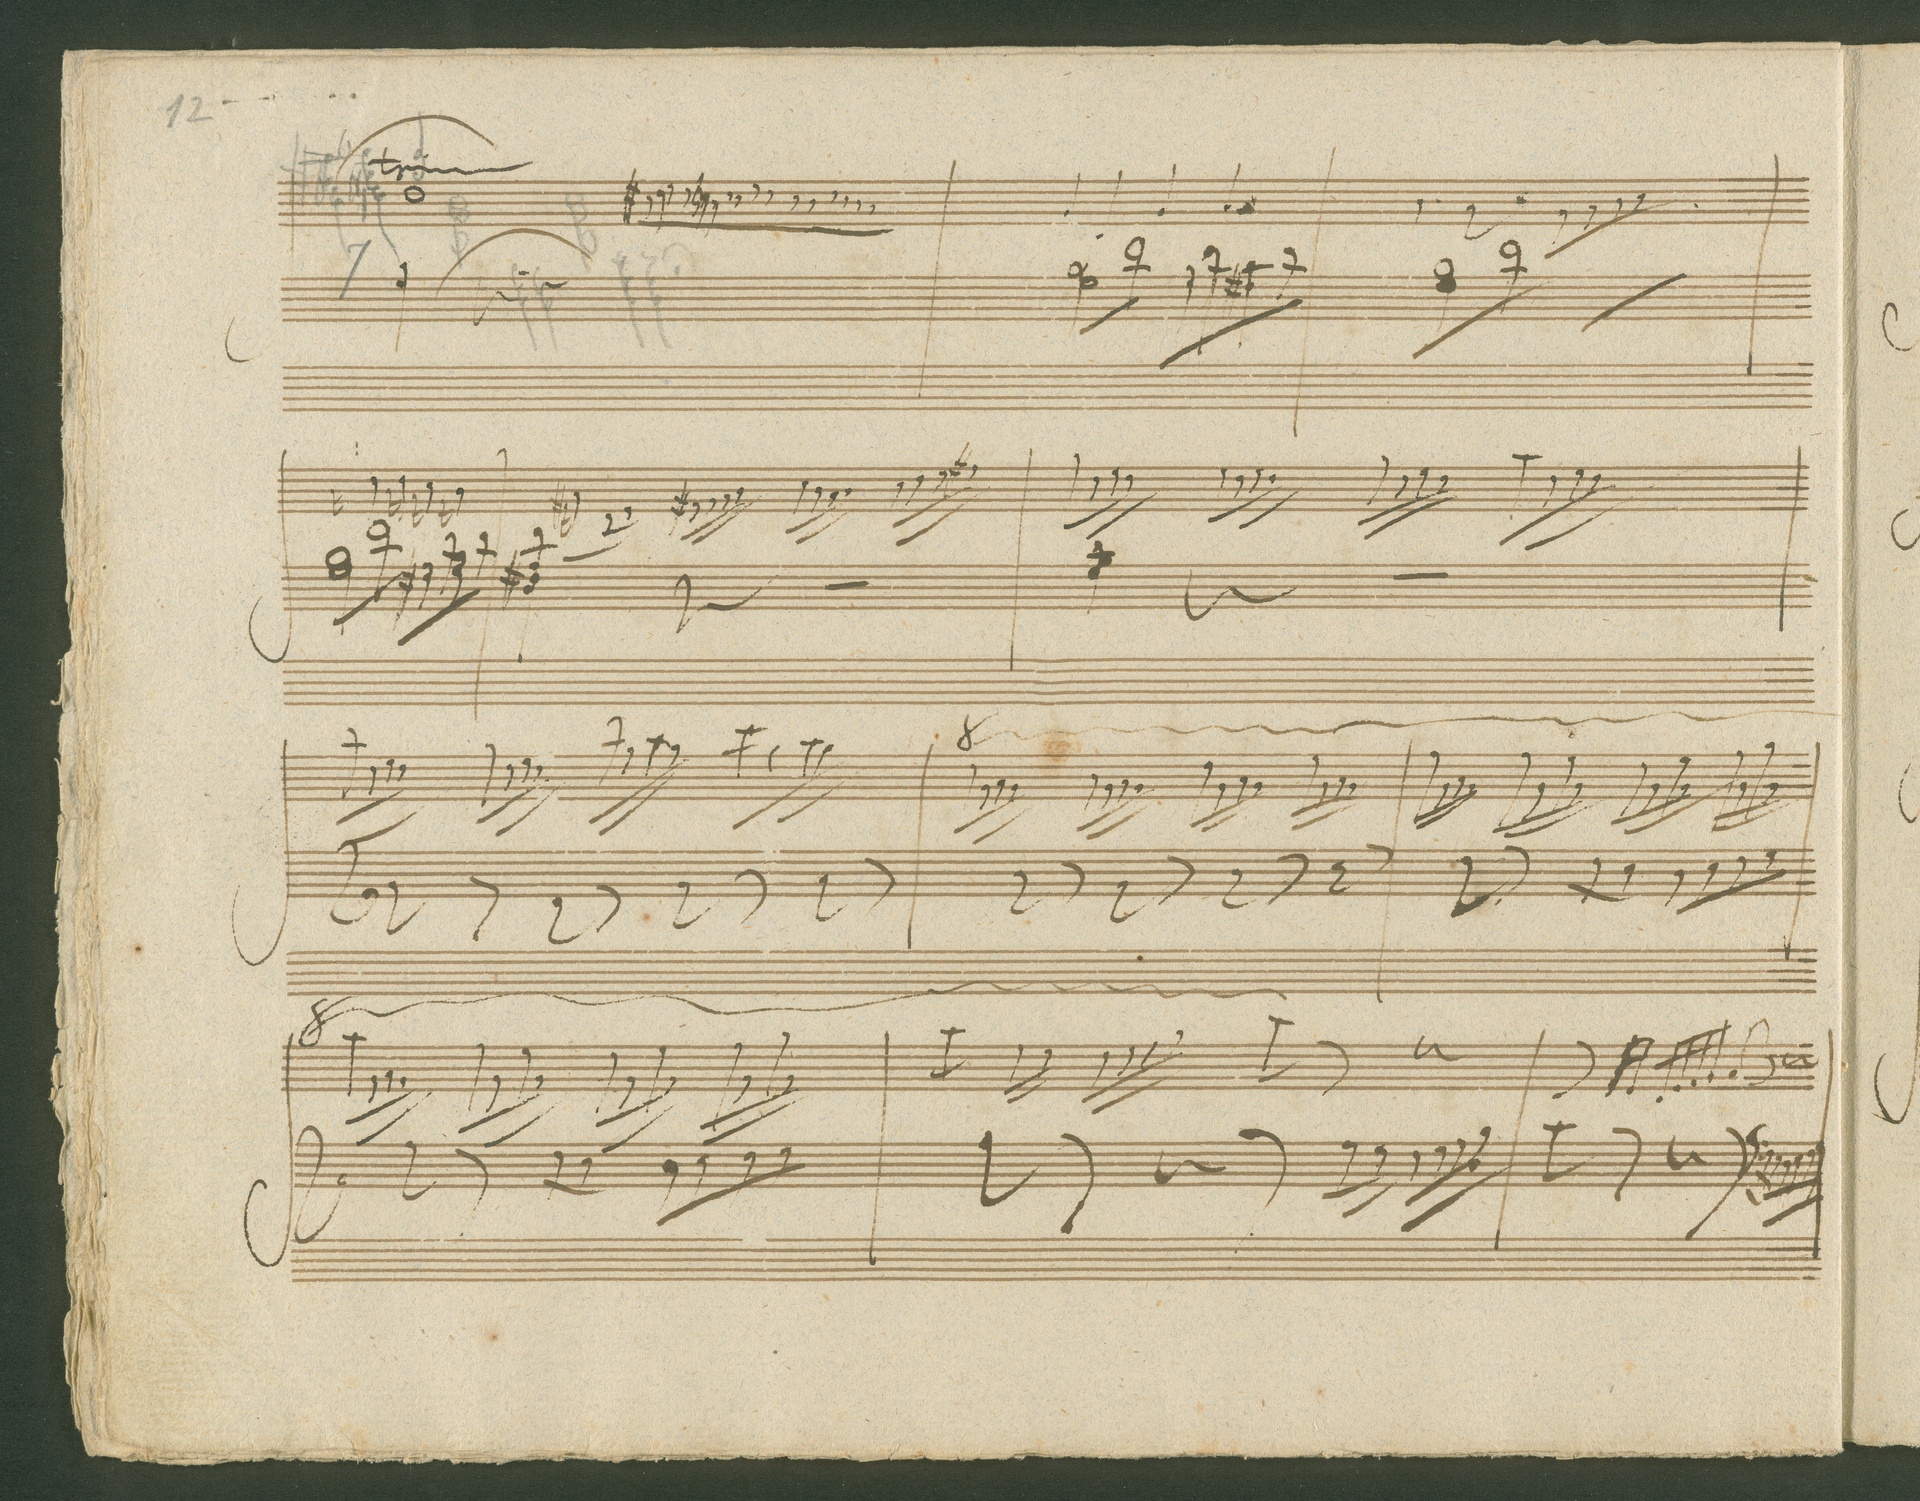 12
tr
7
8
8